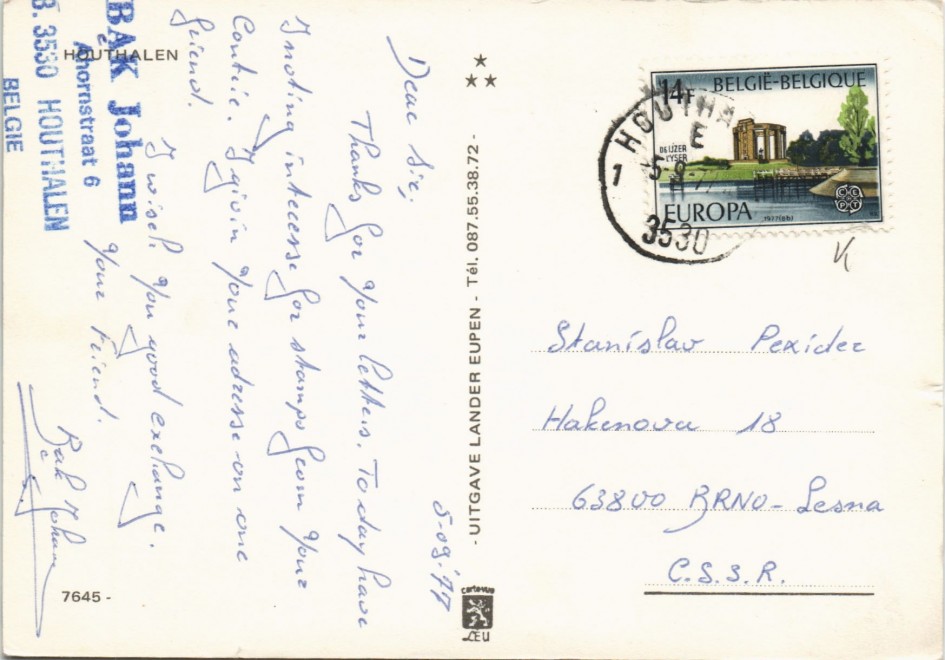 HOUTHALEN
BAK Johann
Ahornstraat 6
B. 3530 HOUTHALEN
BELGIE
5-09-'77
Dear Sir,
Thanks for your letters. Today have
I noting interesse for stamps from your
Contrie. I givin your adresse on one
friend.
I wish you good exchange.
Your Friend.
Bak Johann
7645 -
- UITGAVE LANDER EUPEN - Tél. 087.55.38.72 -
carte-vue
LEU
14F BELGIË-BELGIQUE
DE IJZER
L'YSER
EUROPA
CEPT
1977
HOUTHA
E
1
3530
Stanislav Pexider
Hakenova 18
63800 BRNO-Lesna
C.S.S.R.